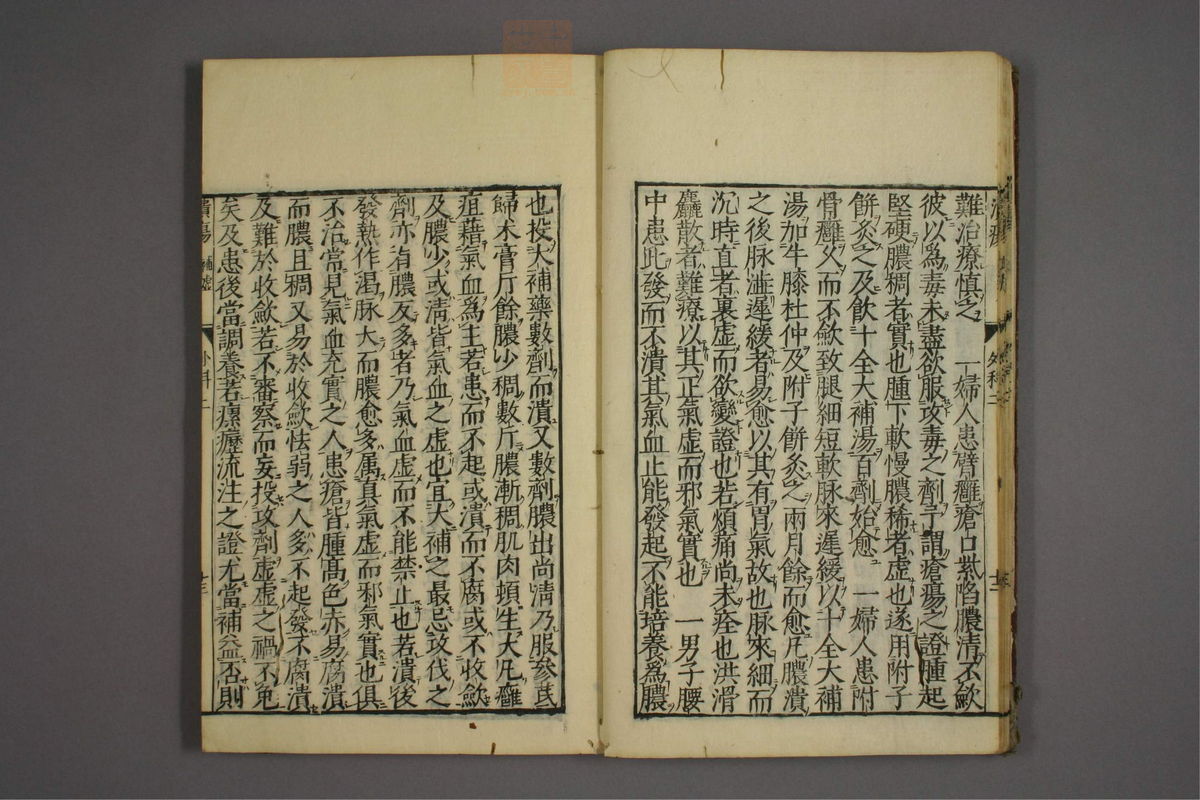 難治療慎之　一婦人患臂癰瘡口紫陷膿清不歛
彼以爲毒未盡欲服攻毒之劑予謂瘡瘍之證腫起
堅硬膿稠者實也腫下軟慢膿稀者虚也遂用附子
餅灸之及飲十全大補湯百劑始愈　一婦人患附
骨癰久而不歛致腿細短軟脉來遲緩以十全大補
湯加牛膝杜仲及附子餅灸之兩月餘而愈凡膿潰
之後脉澁遲緩者易愈以其有胃氣故也脉來細而
沉時直者裏虚而欲變證也若煩痛尚未痊也洪滑
麤散者難療以其正氣虚而邪氣實也　一男子腰
中患此發而不潰其氣血止能發起不能培養爲膿
也投大補藥數劑而潰又數劑膿出尚清乃服參芪
歸术膏斤餘膿少稠數斤膿漸稠肌肉頓生大凡癰
疽藉氣血爲主若患而不起或潰而不腐或不收歛
及膿少或清皆氣血之虚也宜大補之最忌攻伐之
劑亦有膿反多者乃氣血虚而不能禁止也若潰後
發熱作渴脉大而膿愈多属真氣虚而邪氣實也俱
不治常見氣血充實之人患瘡皆腫髙色赤易腐潰
而膿且稠又易於收歛怯弱之人多不起發不腐潰
及難於收歛若不審察而妄投攻劑虚虚之禍不免
矣及患後當調養若瘰癧流注之證尤當補益否則
潰瘍　補虚　外科二　十三